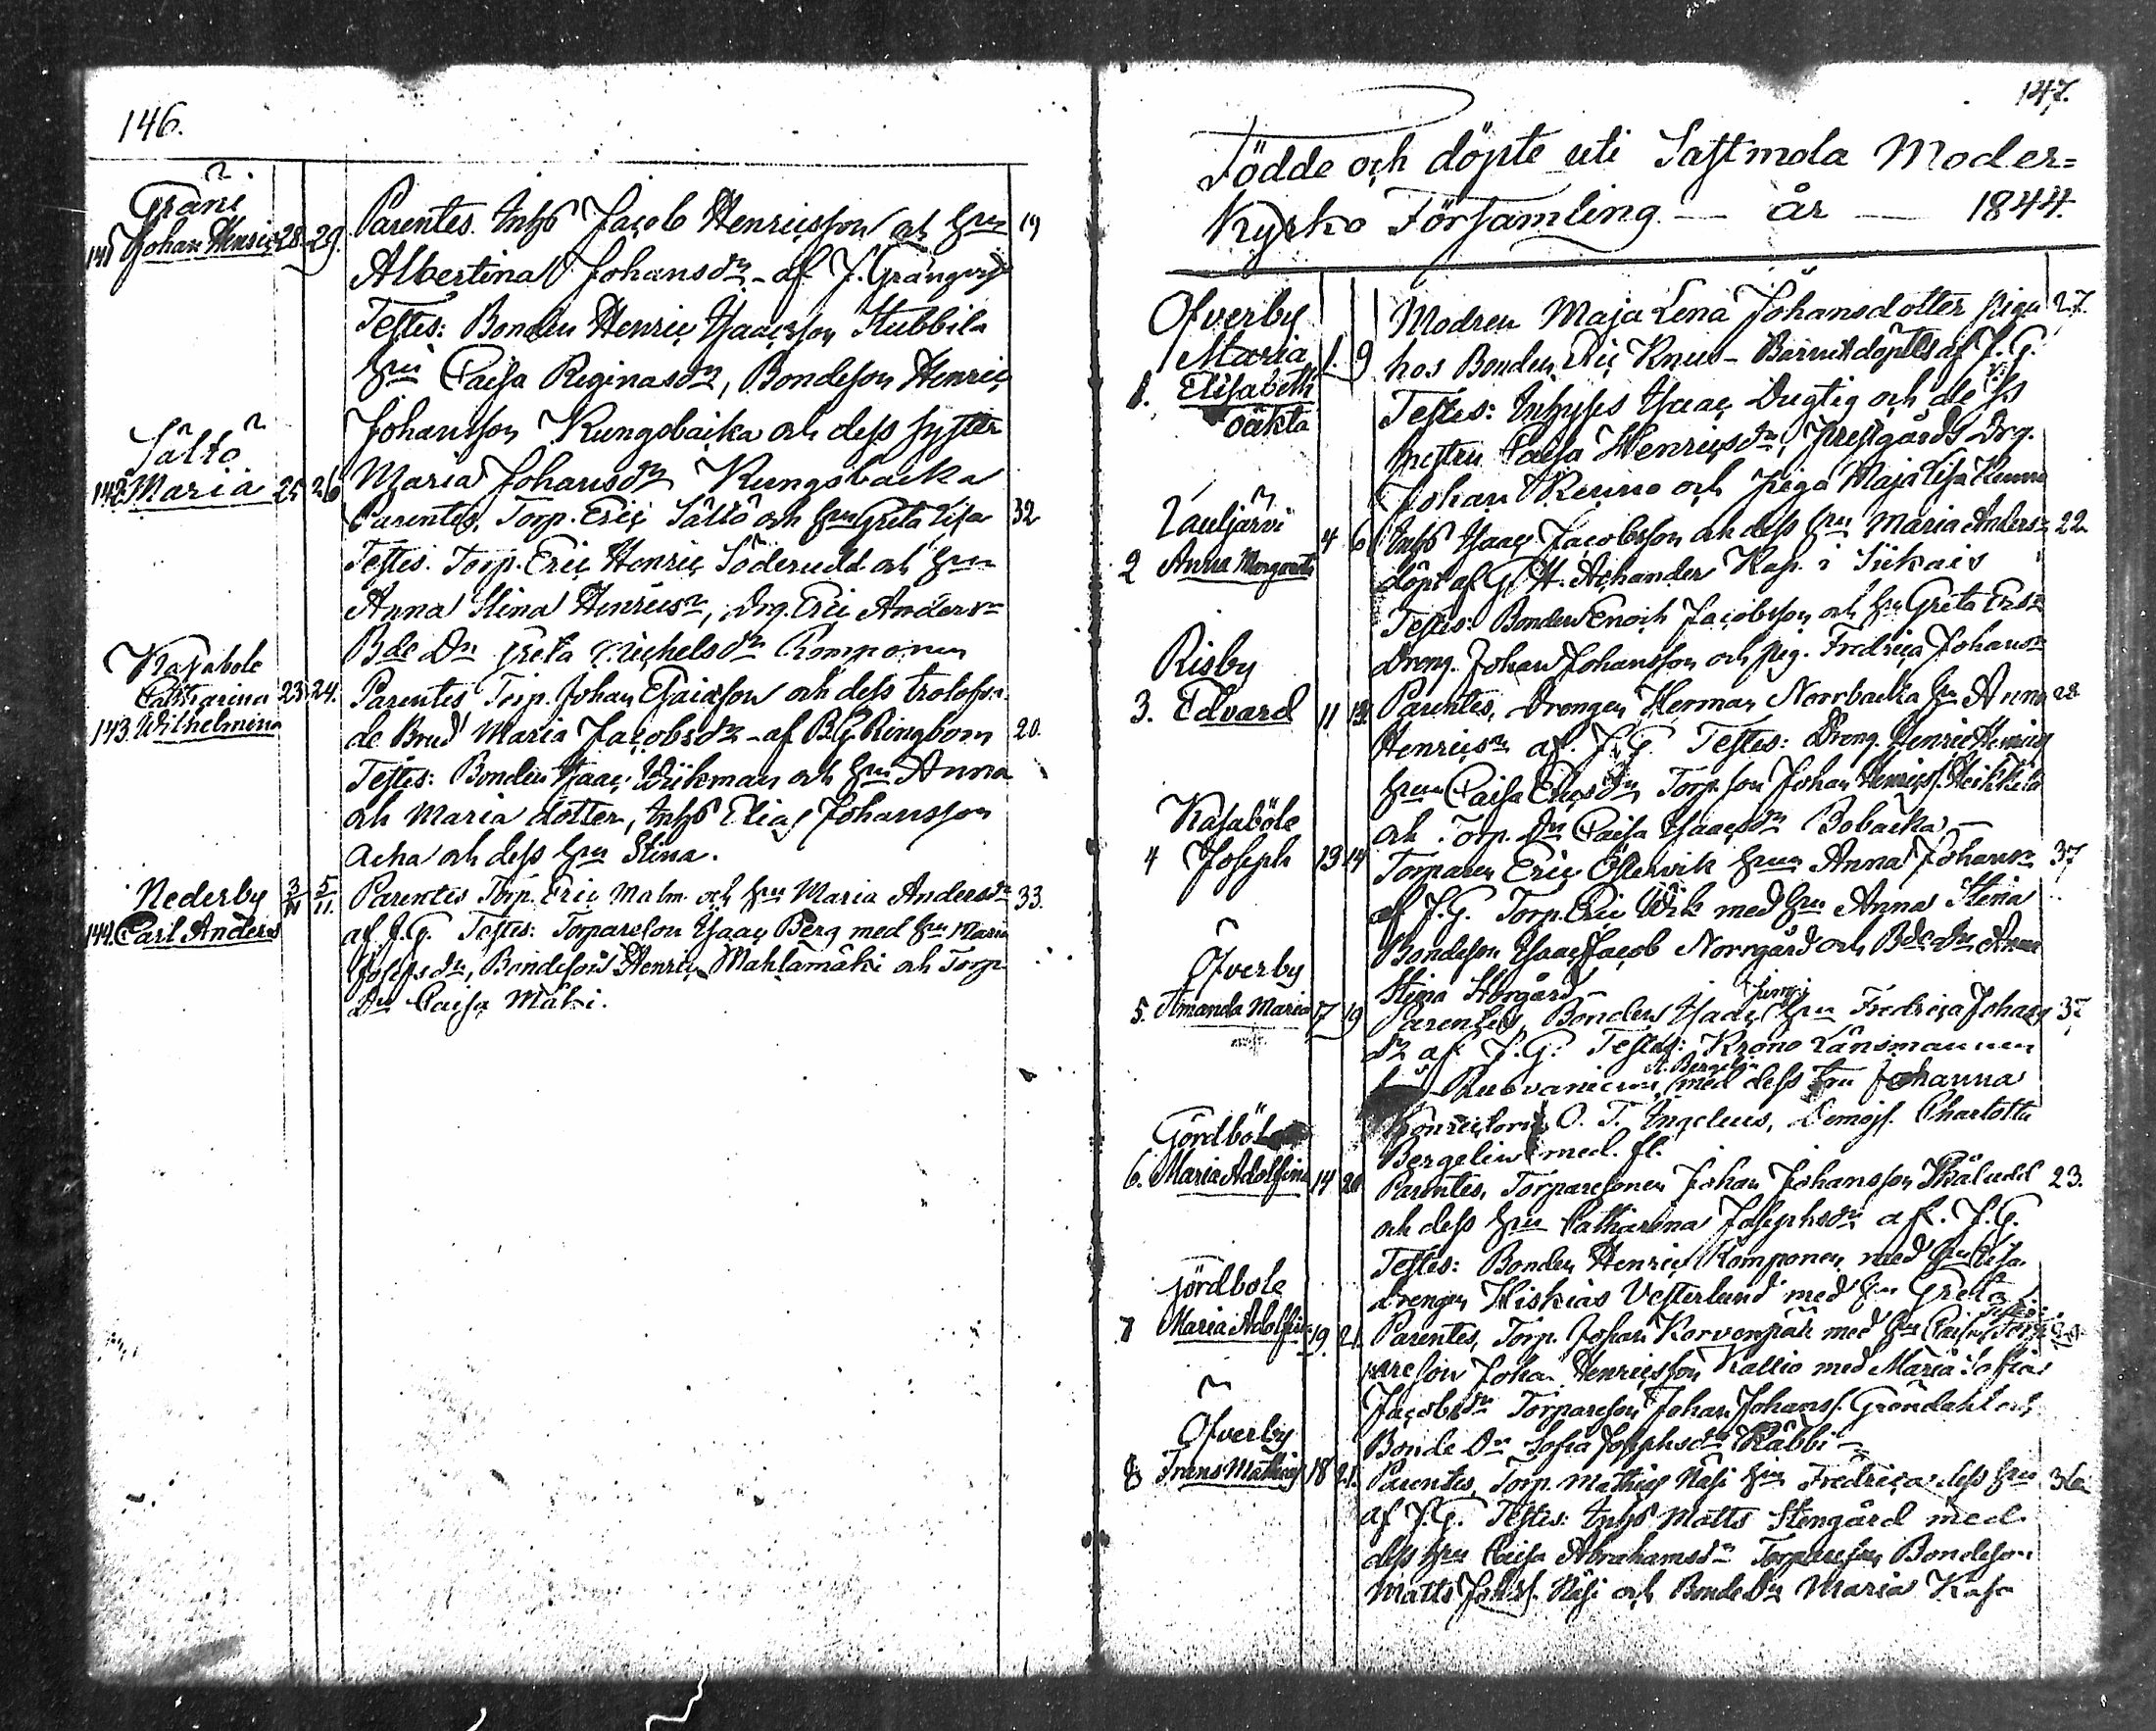 146.
Gräni
141 Johan Henric 28. 29. Parentes. Inhs Jacob Henricsson och hru 19
Albertina Johansdr - af J. Grönqvist
Testes: Bonden Henric Isaacsson Stubbila
hru Caisa Reginasdr, Bondeson Henric
Johansson Kungsbacka och dess syster
Maria Johansdr Kungsbacka
Sältö
142. Maria 25 26 Parentes, Torp. Eric Sältö och hru Greta Lisa 32
Testes. Torp. Eric Henric Söderudd och hru
Anna Stina Henricsdr, Drg. Eric Anders
Bde Dr Greta Michelsdr Komponen
Kasabole
Catharina
143. Wilhelmina 23. 24. Parentes Torp. Johan Isaicsson och dess trolofva-
de Brud Maria Jacobsdr - af B G Ringbom 20.
Testes: Bonden Isaac Wikman och hru Anna
och Maria dotter, Inhs Elias Johansson
och dess hru Stina.
Nederby
144. Carl Anders 3/11 5/11. Parentes Torp. Eric Malm och hru Maria Andersdr 33.
af J. G. Testes: Torpareson Isaac Berg med hru Maria
Josefsdr, Bondeson Henric Mahlamäki och Torp.
Dr Caisa Mäki.
147.
Födde och döpte uti Sastmola Moder-
Kyrko Församling — år — 1844.
Öfverby
Maria
1. Elisabeth
oäkta 1. 9 Modren Maja Lena Johansdotter piga 27.
hos Bonden Eric Knus - Barnet döptes af J. G.
Testes: Inhyses Isaac Dugtig och dess
hustru Caisa Henricsdr, Prestgårds Drg.
Johan Renno och piga Maja Lisa
Lauljärvi
2 Anna Margareta 4 6 Inhs Isaac Jacobsson och dess hru Maria Anders 22.
döpt af G. H. Achander Kap. i Siikais
Testes: Bonden Enoch Jacobsson och hru Greta
Dreng. Johan Johansson och pig. Fredrica Johans
Risby
3. Edvard 11 13. Parentes, Drengen Herman Norrbacka hru Anna 28
Henricsdr af. J. G. Testes: Dreng. Henric
hrun Caisa Ericsdr, Torp. son Johan Henricss. Heikkilä
och Torp. dr Caisa Isaacsdr Bobacka -
Kasaböle
4 Joseph 13 14 Torparen Eric Östervik hrun Anna Johans 37
af J. G. Torp. Eric Wik med hru Anna Stina
Bondeson Isaac Jacob Norrgård och Bde Dr Anna
Stina Storgård -
Öfverby
5. Amanda Maria 17 19 Parentes, Bonden Isaac hru Fredrica Johans 37
dr af J. G: Testes: Krono Länsmannen
Rusvanicus, med dess fru Johanna
O. T. Ingelius, Demois. Charlotta
Bergelin med. fl.
Gördböle
6. Maria Adolfina 14 20 Parentes, Torparesonen Johan Johansson Skäludd 23.
och dess hru Catharina Josephsdr af. J. G.
Testes: Bonden Henric Komponen med hru Lisa.
Drengen Hiskias Vesterlund med hru Greta
Jördbole
7 Maria Adolfina 19. 21. Parentes, Torp. Johan Korvenpää med hru Caisa Testes: Torp-
pareson Johan Henricsson Kallio med Maria Sofia
Jacobsdr Torpareson Johan Johanss. Gröndahl och
Bonde Dr Sofia Josephsdr Räbbi -
Öfverby
8 Frans Mathias 18 21. Parentes, Torp. Mathias Näsi hru Fredrica dess hru 36
af J. G. Testes: Inhs Matts Stengård med
dess hru Caisa Abrahamsdr Bondeson
Matts Johss. Näsi och Bonde Dr Maria Kasa